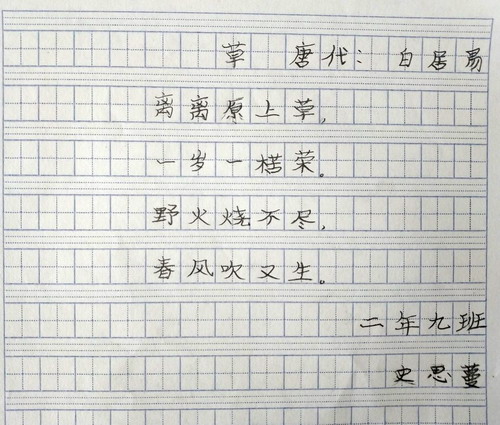 草 唐代：白居易
离离原上草，
一岁一楛荣。
野火烧不尽，
春风吹又生。
二年九班
史思蔓